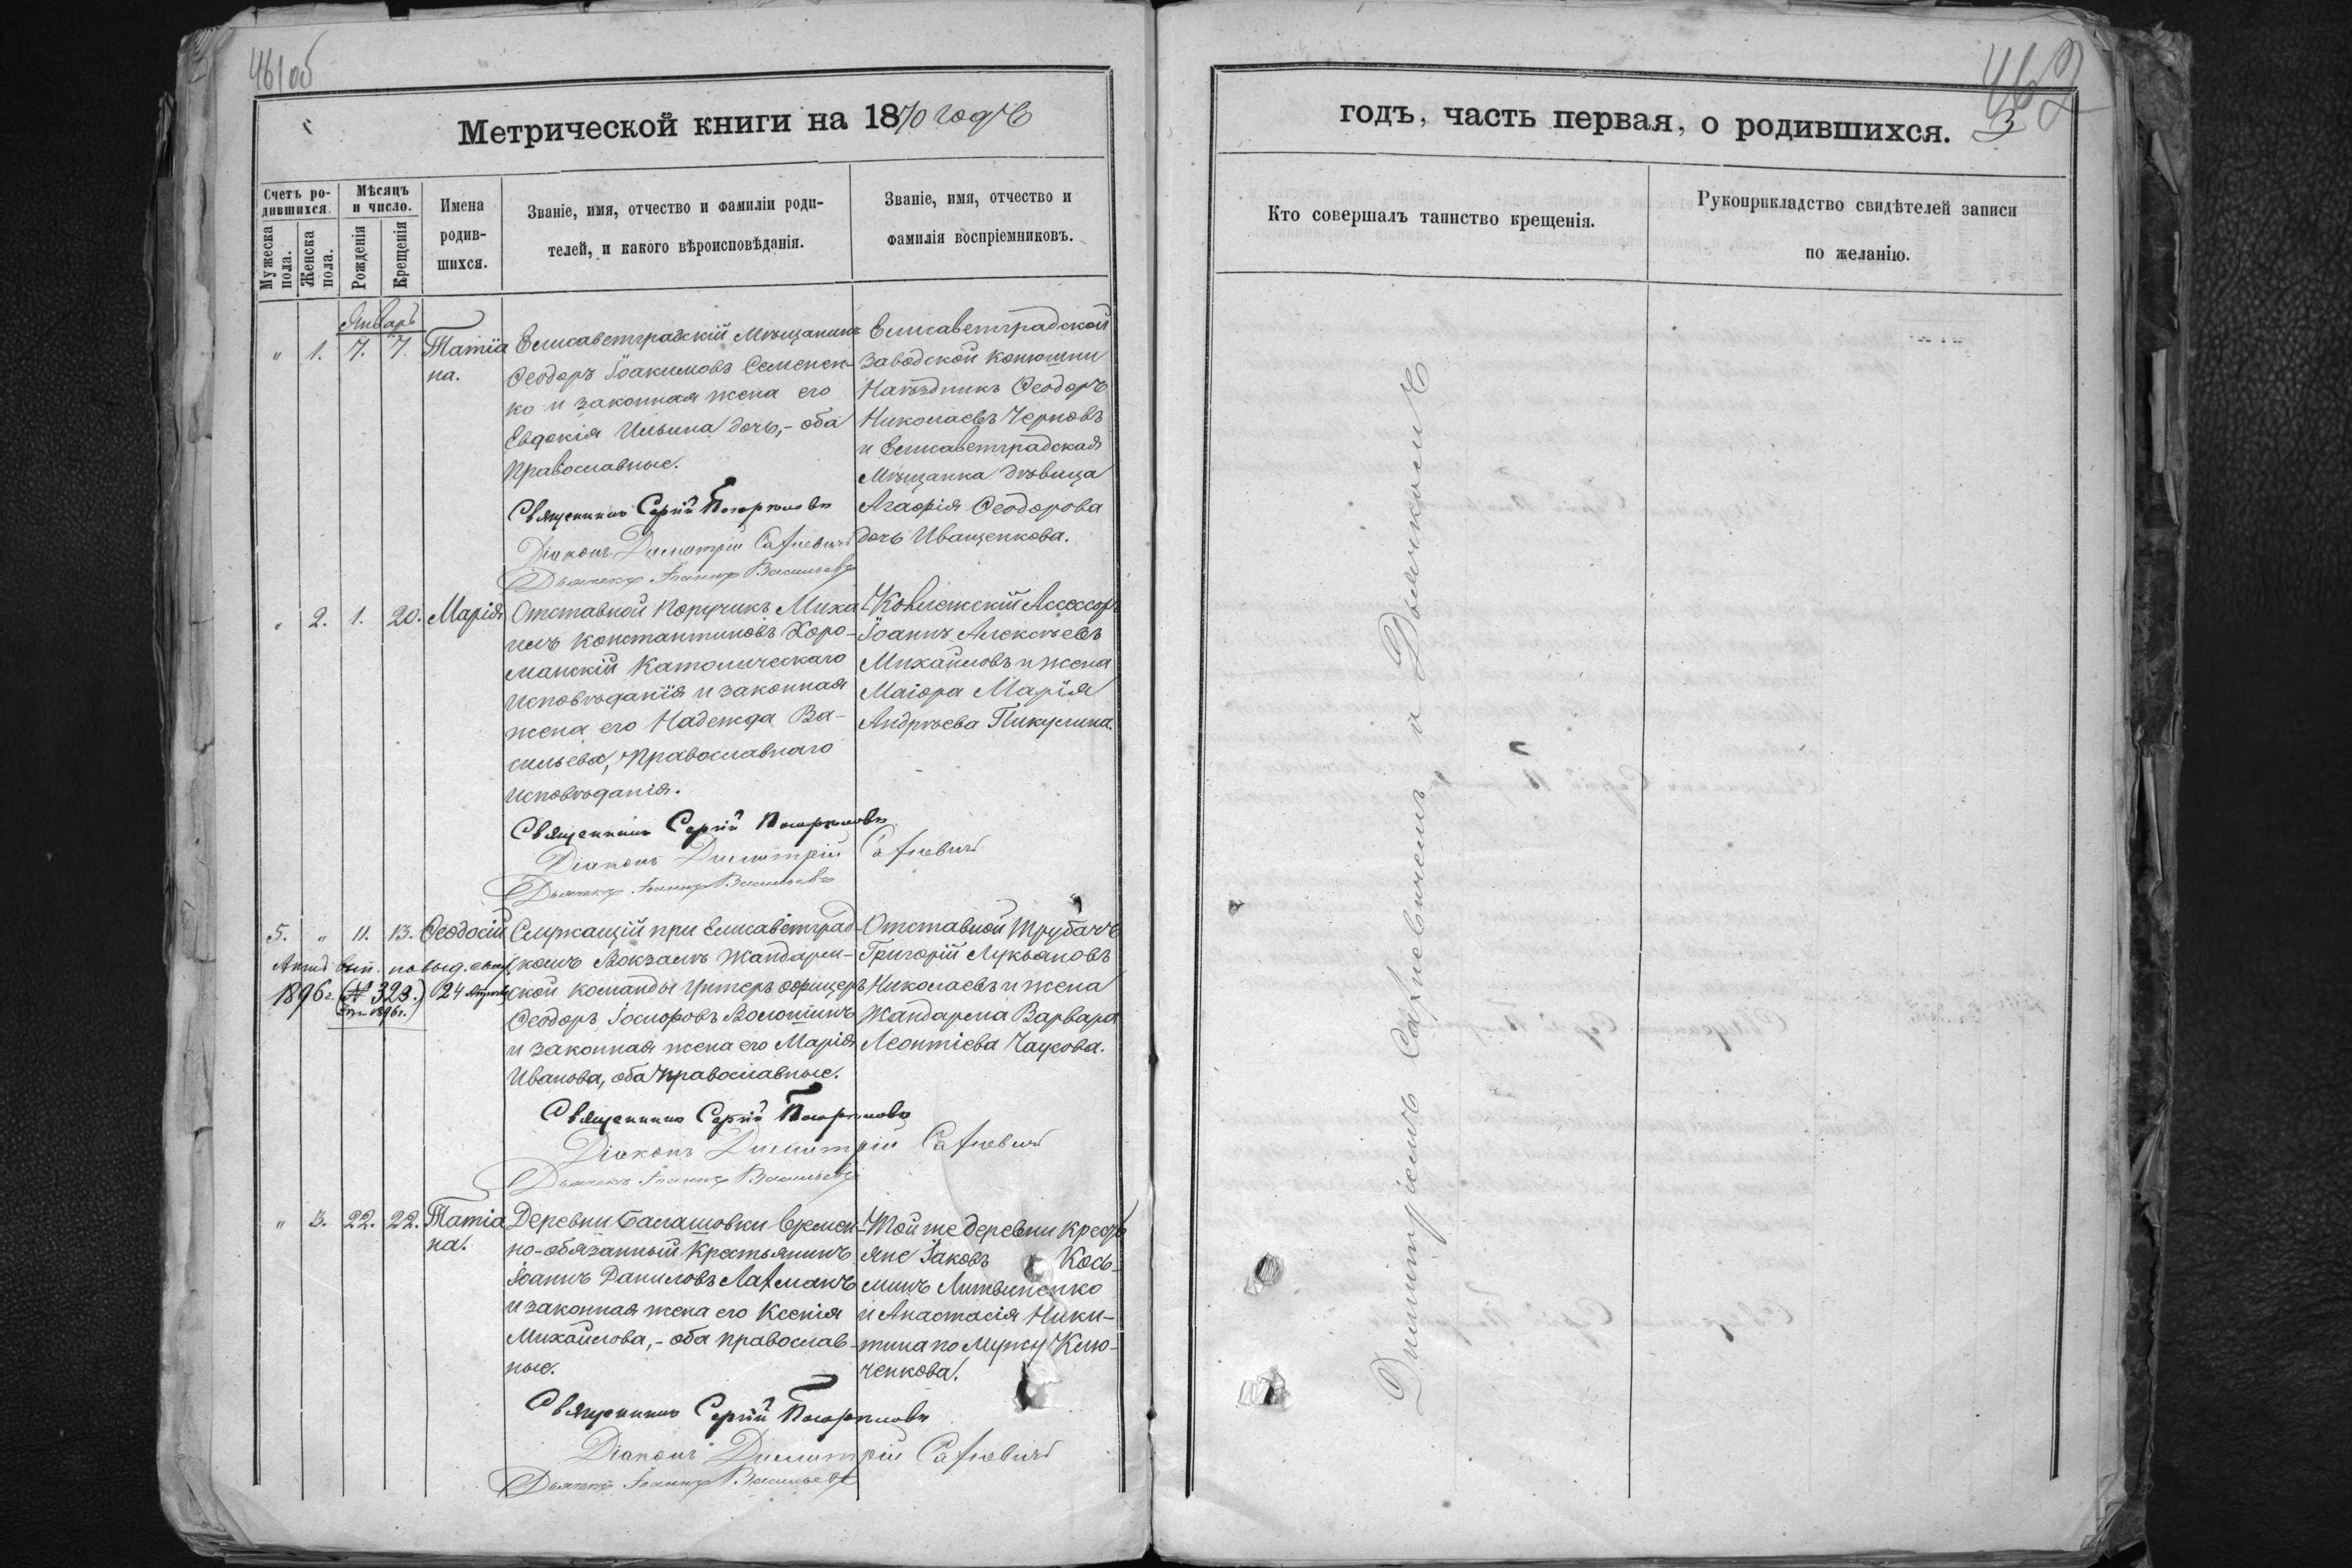 461об
Метрической книги на 1870 годъ
Счетъ ро-
дившихся.
Мѣсяцъ
и число.
Мужеска
пола.
Женска
пола.
Рожденія
Крещенія
Имена
родив-
шихся.
Званіе, имя, отчество и фамиліи роди-
телей, и какого вѣроисповѣданія.
Званіе, имя, отчество и
фамилія воспріемниковъ.
Январь
" 1. 7. 7. Татіа
на.
Елисаветградскій Мѣщанинъ
Ѳеодоръ Іоакимовъ Семенен-
ко и законная жена его
Евдокія Ильина дочь,- оба
Православные.
Священникъ Сергій
Діаконъ Димитрій Сатневичъ
Дьячекъ Іоаннъ Васильевъ
Елисаветградской
заводской конюшни
Наѣздникъ Ѳеодоръ
Николаевъ Черновъ
и Елисаветградская
Мѣщанка дѣвица
Агафія Ѳеодорова
дочь Иващенкова.
" 2. 1. 20. Марія
Отставной Поручикъ Миха-
илъ Константиновъ Хоро-
манскій Католическаго
исповѣданія и законная
жена его Надежда Ва-
сильева, Православнаго
исповѣданія.
Священникъ Сергій
Діаконъ Димитрій Сатневичъ
Дьячекъ Іоаннъ Васильевъ
Коллежскій Ассессоръ
Іоаннъ Алексѣевъ
Михайловъ и жена
Маіора Марія
Андрѣева Пикулина.
5. " 11. 13. Ѳеодосій
выд.
1896г. (№ 323.) 24 Апрѣля
1896г.
Служащій при Елисаветград-
скомъ Вокзалѣ Жандарм-
ской команды Унтеръ офицеръ
Ѳеодоръ Іосифовъ Волошинъ
и законная жена его Марія
Иванова, оба православные.
Священникъ Сергій
Діаконъ Димитрій Сатневичъ
Дьячекъ Іоаннъ Васильевъ
Отставной Трубачъ
Григорій Лукьяновъ
Николаевъ и жена
Жандарма Варвара
Леонтіева Чаусова.
" 3. 22. 22. Татіа
на.
Деревни Балашовки времен-
но-обязанный Крестьянинъ
Іоаннъ Даниловъ Латманъ
и законная жена его Ксенія
Михайлова,- оба православ-
ные.
Священникъ Сергій
Діаконъ Димитрій Сатневичъ
Дьячекъ Іоаннъ Васильевъ
Той же деревни Кресть
яне Іаковъ Кось-
минъ Литвиненко
и Анастасія Ники-
тина по мужу Клю-
ченкова.
462
годъ, часть первая, о родившихся. 3
Кто совершалъ таинство крещенія.
Рукоприкладство свидѣтелей записи
по желанію.
Димитріемъ Сатневичемъ и Дьячкомъ